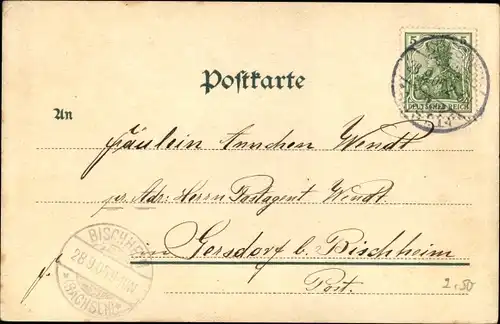 5 5
DEUTSCHES REICH
Postkarte
An
Fräulein Annchen Wendt
pr. Adr: Herrn Postagent Wendt
in Gersdorf b. Bischheim
Post.
BISCHHEIM
28.9.05
(SACHSEN)
2,50